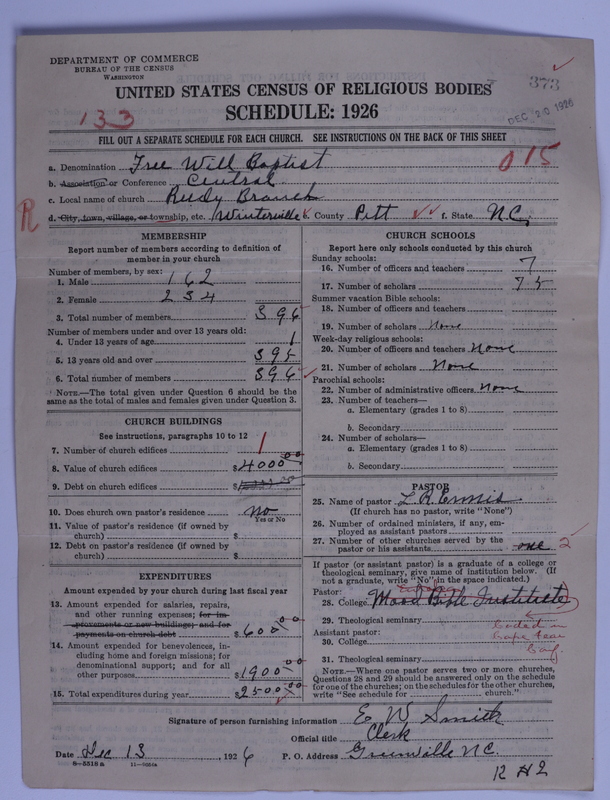 DEPARTMENT OF COMMERCE
BUREAU OF THE CENSUS
WASHINGTON
373
UNITED STATES CENSUS OF RELIGIOUS BODIES
DEC 20 1926
133
SCHEDULE: 1926
FILL OUT A SEPARATE SCHEDULE FOR EACH CHURCH. SEE INSTRUCTIONS ON THE BACK OF THIS SHEET
a. Denomination Free Will Baptist
015
b. Association or Conference Central
c. Local name of church Reedy Branch
R
d. City, town, village, or township, etc. Winterville e. County Pitt f. State N.C.
MEMBERSHIP
Report number of members according to definition of member in your church
Number of members, by sex:
1. Male 162
2. Female 234
3. Total number of members 396
Number of members under and over 13 years old:
4. Under 13 years of age 1
5. 13 years old and over 395
6. Total number of members 396
NOTE.—The total given under Question 6 should be the
same as the total of males and females given under Question 3.
CHURCH BUILDINGS
See instructions, paragraphs 10 to 12
7. Number of church edifices 1
8. Value of church edifices $4000.00
9. Debt on church edifices $
10. Does church own pastor's residence No
Yes or No
11. Value of pastor's residence (if owned by
church) $
12. Debt on pastor's residence (if owned by
church) $
EXPENDITURES
Amount expended by your church during last fiscal year
13. Amount expended for salaries, repairs,
and other running expenses; for im-
provements or new buildings; and for
payments on church debt $600.00
14. Amount expended for benevolences, in-
cluding home and foreign missions; for
denominational support; and for all
other purposes 1900.00
15. Total expenditures during year $2500.00
CHURCH SCHOOLS
Report here only schools conducted by this church
Sunday schools:
16. Number of officers and teachers 7
17. Number of scholars 75
Summer vacation Bible schools:
18. Number of officers and teachers
19. Number of scholars None
Week-day religious schools:
20. Number of officers and teachers None
21. Number of scholars None
Parochial schools:
22. Number of administrative officers None
23. Number of teachers—
a. Elementary (grades 1 to 8)
b. Secondary
24. Number of scholars—
a. Elementary (grades 1 to 8)
b. Secondary
PASTOR
25. Name of pastor L. R. Ennis
(If church has no pastor, write "None")
26. Number of ordained ministers, if any, em-
ployed as assistant pastors
27. Number of other churches served by the
pastor or his assistants one 2
If pastor (or assistant pastor) is a graduate of a college or
theological seminary, give name of institution below. (If
not a graduate, write "No" in the space indicated.)
Pastor:
28. College Mood Bible Institute
29. Theological seminary
Coded in
Cape Fear
Conf.
Assistant pastor:
30. College
31. Theological seminary
NOTE.—Where one pastor serves two or more churches,
Questions 28 and 29 should be answered only on the schedule
for one of the churches; on the schedules for the other churches,
write "See schedule for church."
Signature of person furnishing information E W Smith
Official title Clerk
Date Dec 13, 1926 P. O. Address Greenville N.C.
8—5518a 11—
R H2